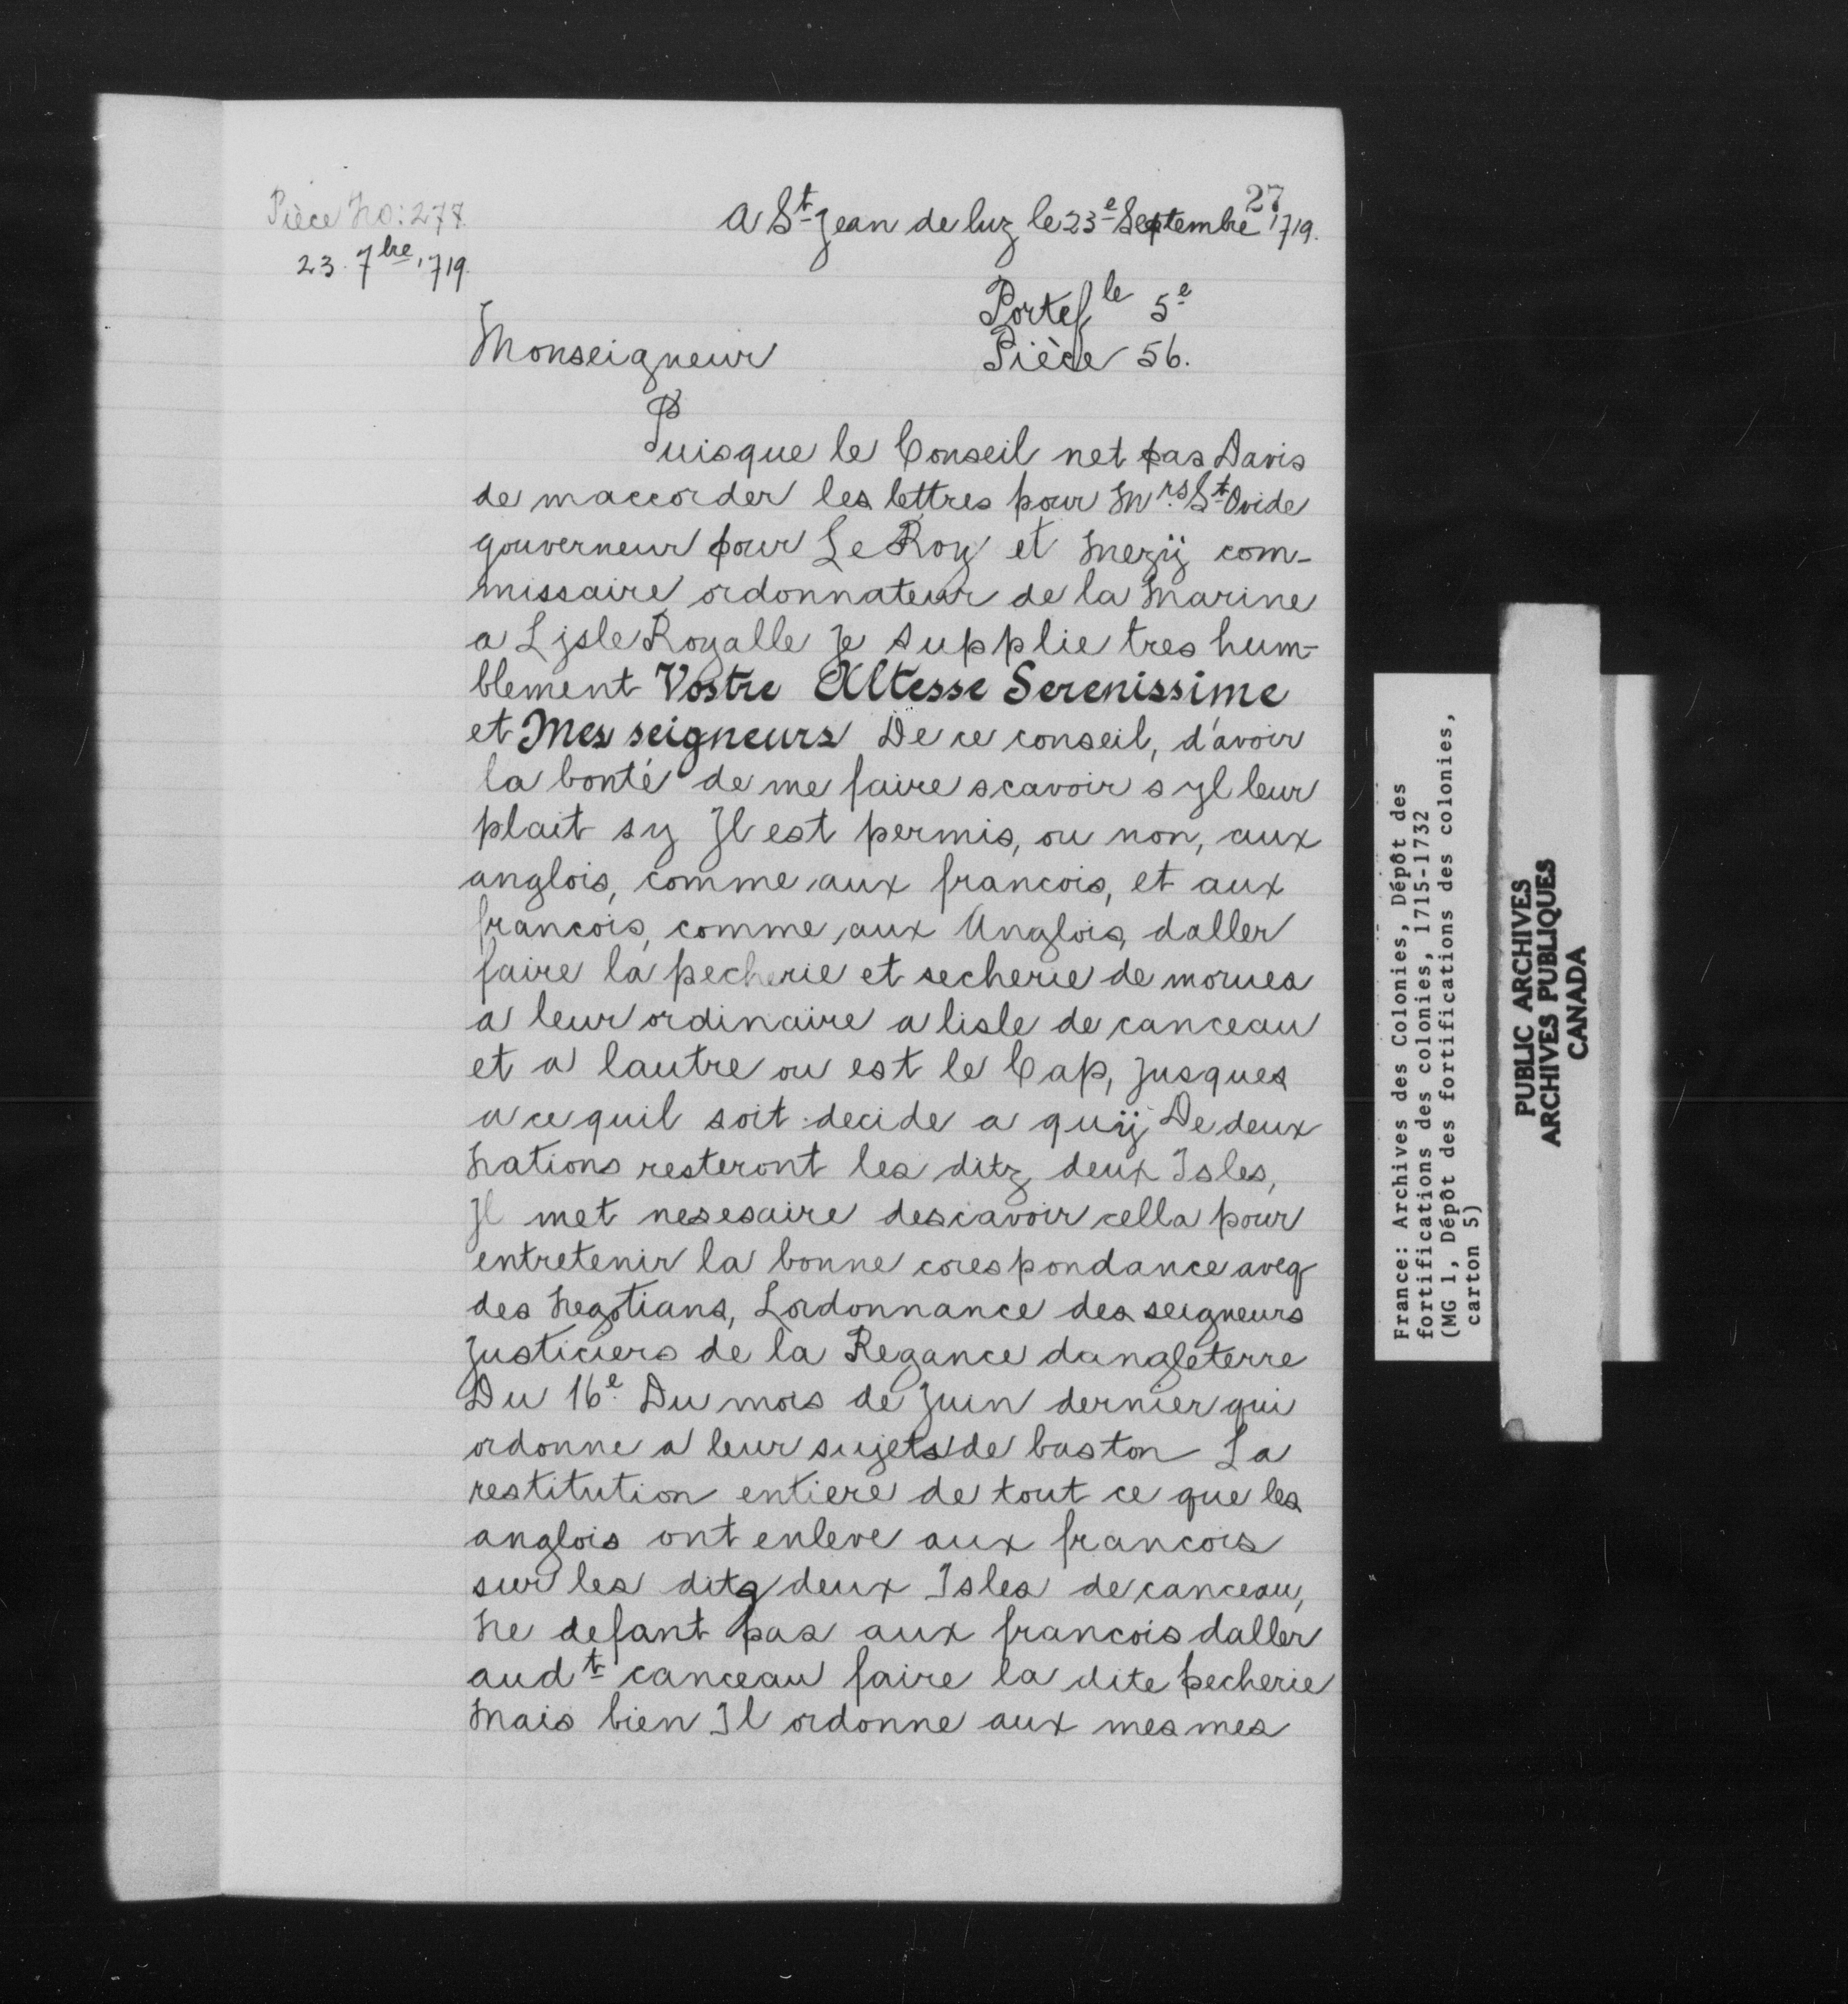 Pièce No: 278.
23. 7bre 1719.
27
A St Jean de luz le 23e Septembre 1719.
Portefle 5e
Pièce 56.
Monseigneur
Puisque le Conseil net pas Davis
de maccorder les lettres pour Mrs. St Ovide
gouverneur pour Le Roy et Mezÿ com-
missaire ordonnateur de la Marine
a Ljsle Royalle Je supplie tres hum-
blement Vostre Altesse Serenissime
et Mes seigneurs De ce conseil, d'avoir
la bonté de me faire scavoir s yl leur
plait sy Jl est permis, ou non, aux
anglois, comme aux francois, et aux
francois, comme aux Anglois, daller
faire la pecherie et secherie de morues
a leur ordinaire a lisle de canceau
et a lautre ou est le Cap, Jusques
a ce quil soit decide a quÿ De deux
Nations resteront les ditz deux Isles,
Jl met nesesaire descavoir cella pour
entretenir la bonne corespondance aveq
des Negotians, Lordonnance des seigneurs
Justiciers de la Regance dangleterre
Du 16e. Du mois de Juin dernier qui
ordonne a leur sujets de baston La
restitution entiere de tout ce que les
anglois ont enleve aux francois
sur les ditz deux Isles de canceau,
Ne defant pas aux francois daller
audt canceau faire la dite pecherie
Mais bien Il ordonne aux mesmes
France: Archives des Colonies, Dépôt des
fortifications des colonies, 1715-1732
(MG 1, Dépôt des fortifications des colonies,
carton 5)
PUBLIC ARCHIVES
ARCHIVES PUBLIQUES
CANADA